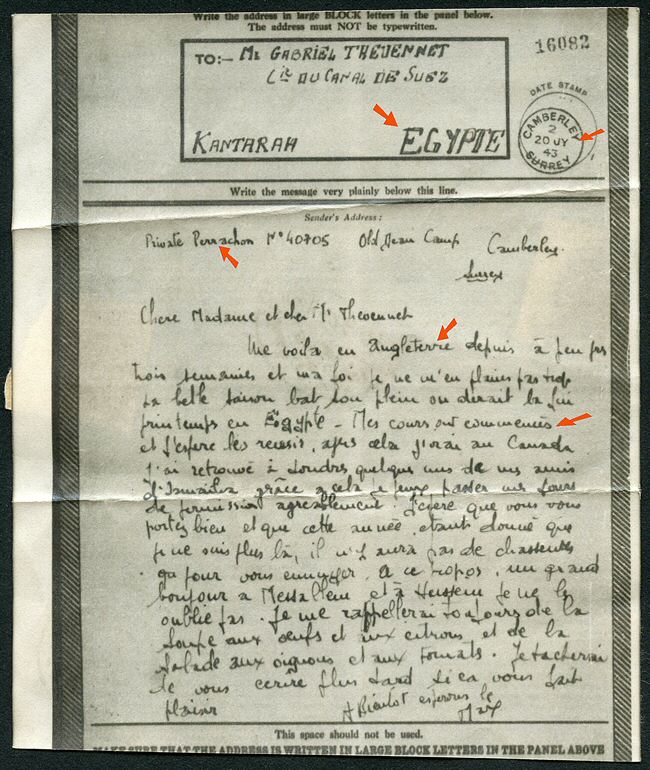 Write the address in large BLOCK letters in the panel below.
The address must NOT be typewritten.
TO:— Mr GABRIEL THEVENNET
Cie DU CANAL DE SUEZ
KANTARAH EGYPTE
16082
DATE STAMP
CAMBERLEY
2
20 JY
43
SURREY
Write the message very plainly below this line.
Sender's Address:
Private Perrachon N° 40705 Old Dean Camp Camberley
Surrey
Chere Madame et cher Mr Thevennet
Me voila en Angleterre depuis à peu pres
trois semaines et ma foi je ne m'en plains pas trop
La belle saison bat son plein on dirait la fin
printemps en Egypte - Mes cours ont commencés
et j'espère les reussir, apres cela j'irai au Canada
J'ai retrouvé à Londres quelques uns de mes amis
d'Ismailia grâce a cela je peux passer mes jours
de permission agreablement. J'espere que vous vous
portez bien et que cette année, etant donné que
je ne suis plus là, il n'y aura pas de chasseurs
pour vous ennuyer. A ce propos, un grand
bonjour a Messallem et à Hussein je ne les
oublie pas. Je me rappellerai toujours de la
soupe aux oeufs et aux citrons et de la
salade aux oignons et aux tomats. Je tacherai
de vous ecrire plus tard si ca vous fait
plaisir A Bientot esperons le
Max
This space should not be used.
MAKE SURE THAT THE ADDRESS IS WRITTEN IN LARGE BLOCK LETTERS IN THE PANEL ABOVE